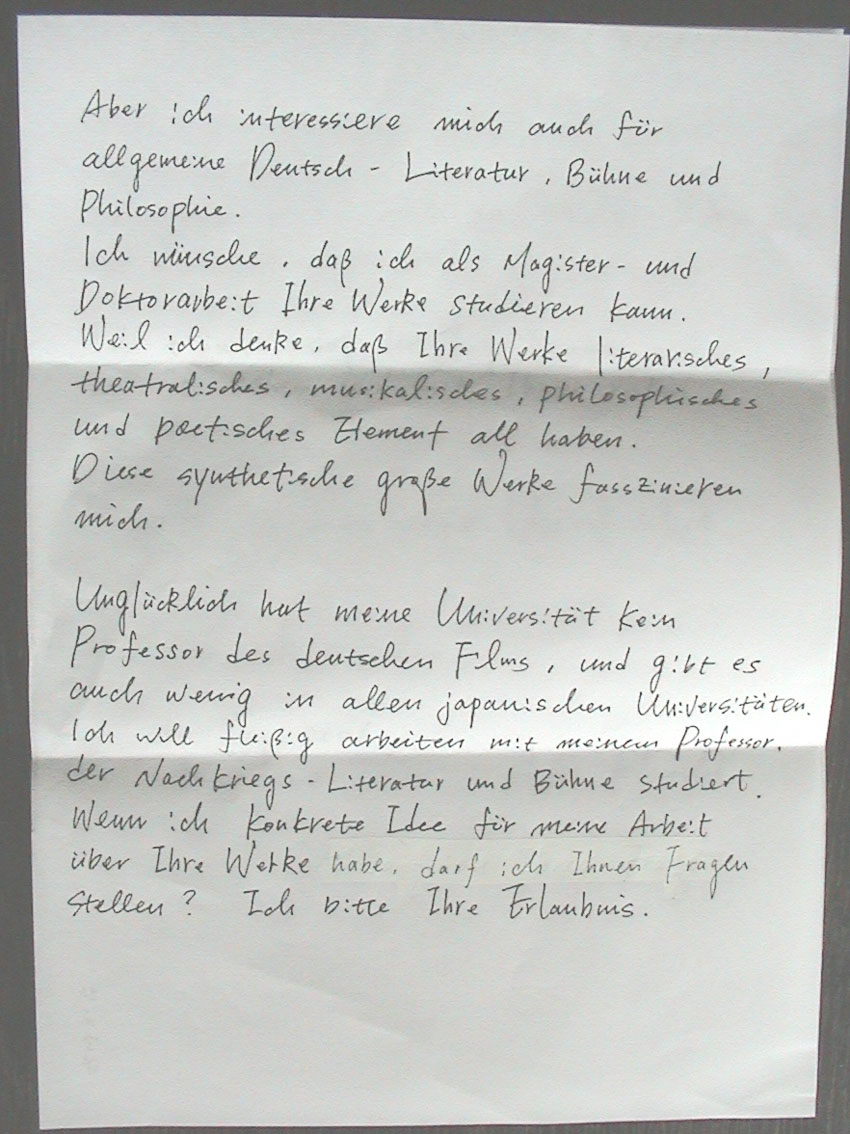 Aber ich interessiere mich auch für
allgemeine Deutsch - Literatur, Bühne und
Philosophie.
Ich wünsche, daß ich als Magister- und
Doktorarbeit Ihre Werke studieren kann.
Weil ich denke, daß Ihre Werke literarisches,
theatralisches, musikalisches, philosophisches
und poetisches Element all haben.
Diese synthetische große Werke fasszinieren
mich.
Unglücklich hat meine Universität kein
Professor des deutschen Films, und gibt es
auch wenig in allen japanischen Universitäten.
Ich will fleißig arbeiten mit meinem Professor,
der Nachkriegs - Literatur und Bühne studiert.
Wenn ich konkrete Idee für meine Arbeit
über Ihre Werke habe, darf ich Ihnen Fragen
stellen? Ich bitte Ihre Erlaubnis.